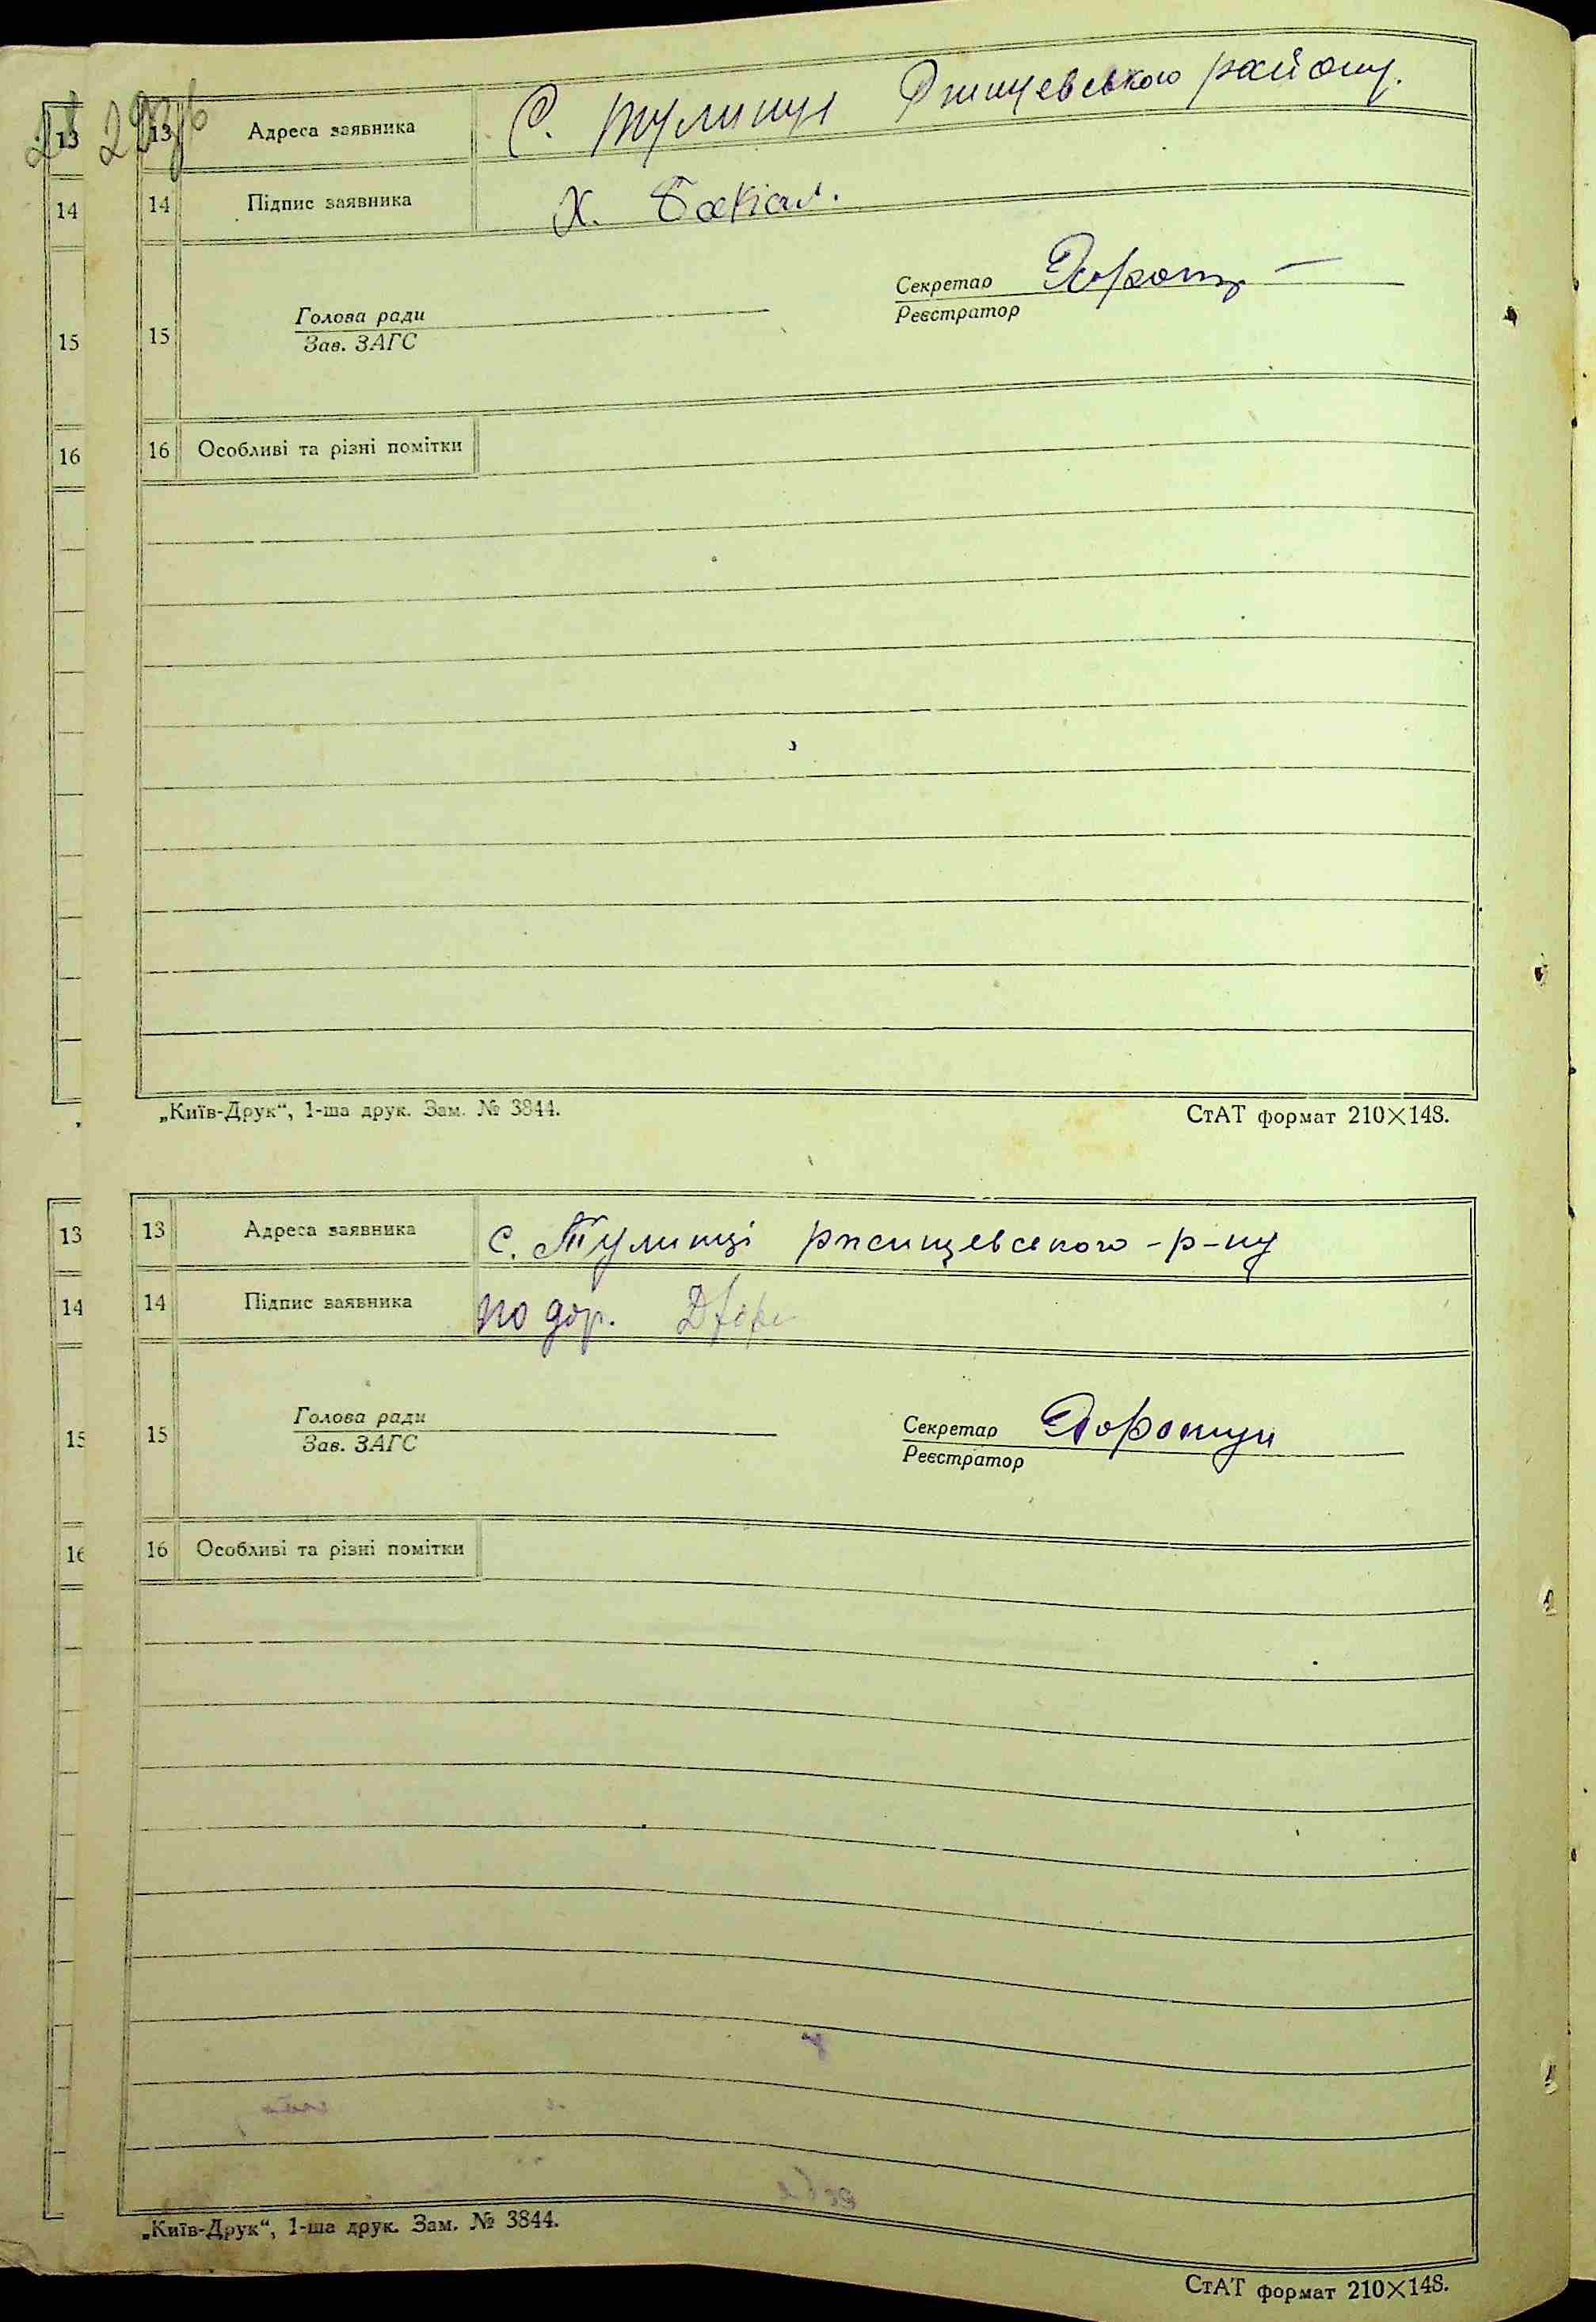 13 Адреса заявника С. Тулинци Ржищевського району.
14 Підпис заявника Х. Бакіал.
15 Голова ради
Зав. ЗАГС
Секретар
Реєстратор
16 Особливі та різні помітки
„Київ-Друк“, 1-ша друк. Зам. № 3844. СтАТ формат 210×148.
13 Адреса заявника с. Тулинці ржищевського-р-ну
14 Підпис заявника по дор.
15 Голова ради
Зав. ЗАГС
Секретар
Реєстратор
16 Особливі та різні помітки
„Київ-Друк“, 1-ша друк. Зам. № 3844.
СтАТ формат 210×148.
13
14
15
16
13
14
15
16